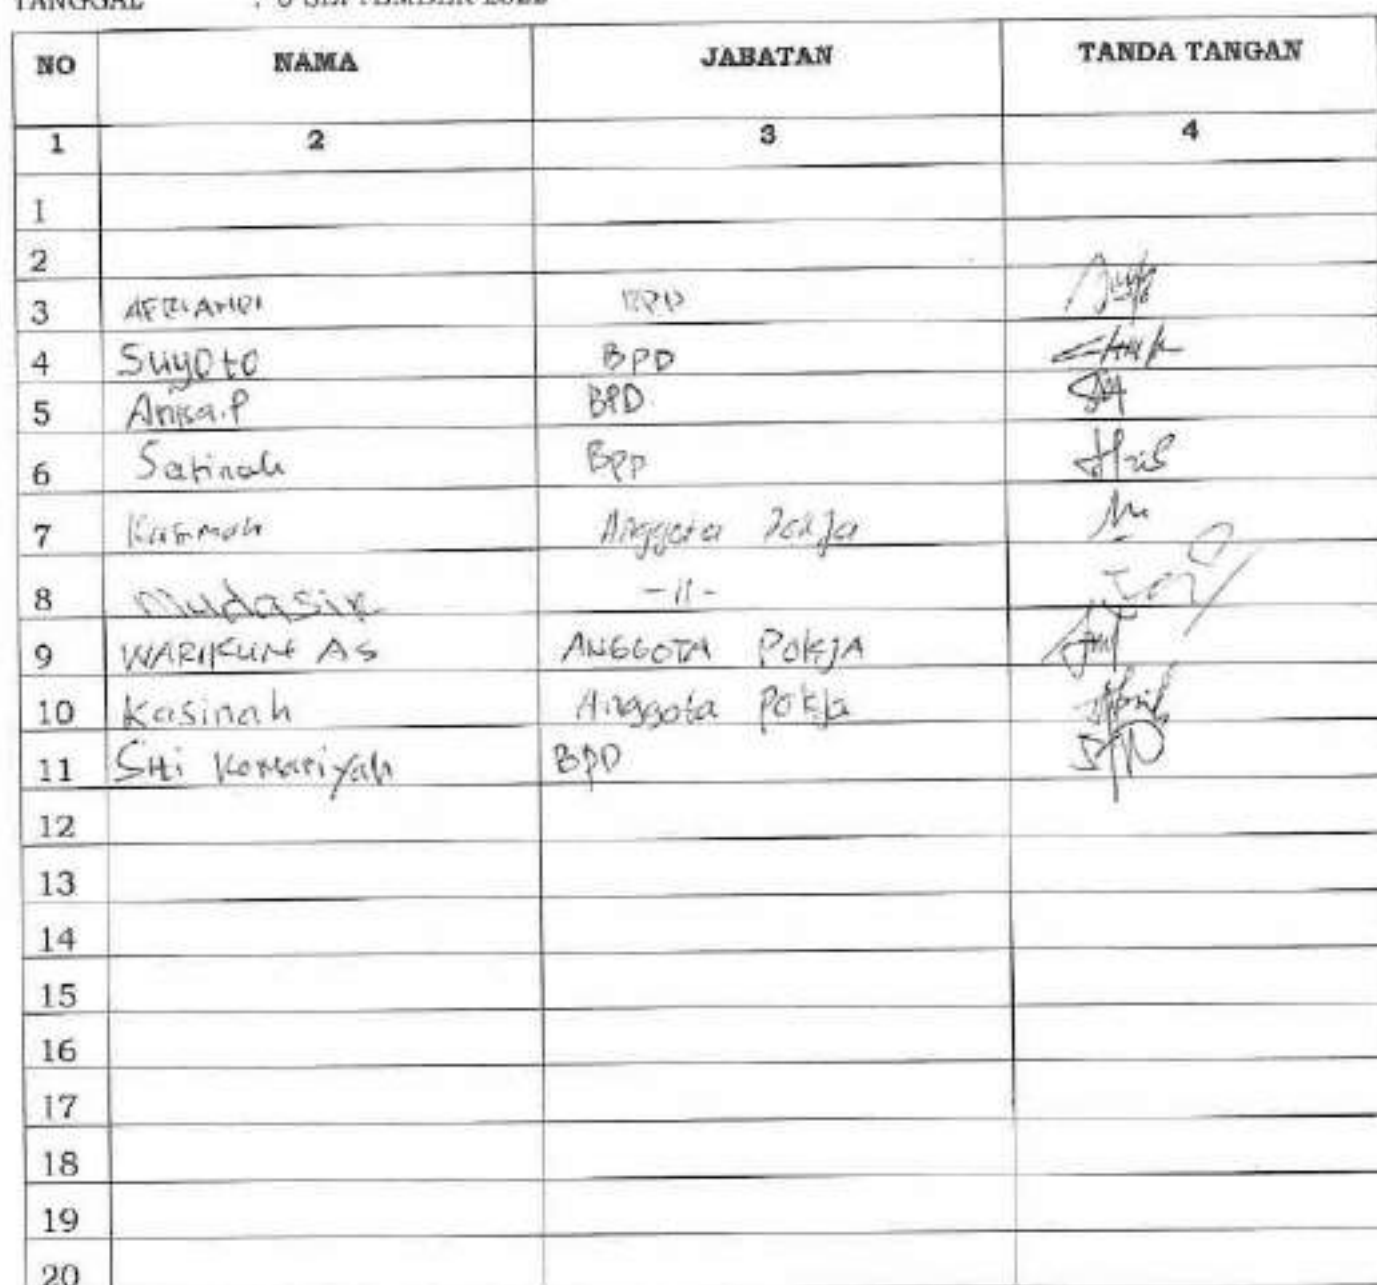 TANGGAL : SEPTEMBER 2022
NO NAMA JABATAN TANDA TANGAN
1 2 3 4
1
2
3 AFRIANDI BPD
4 Suyoto BPD
5 Anisa.P BPD.
6 Satinah BPD
7 Anggota Pokja
8 Mudasir -11-
9 WARIKUN AS ANGGOTA POKJA
10 Kasinah Anggota Pokja
11 Siti Komariyah BPD
12
13
14
15
16
17
18
19
20